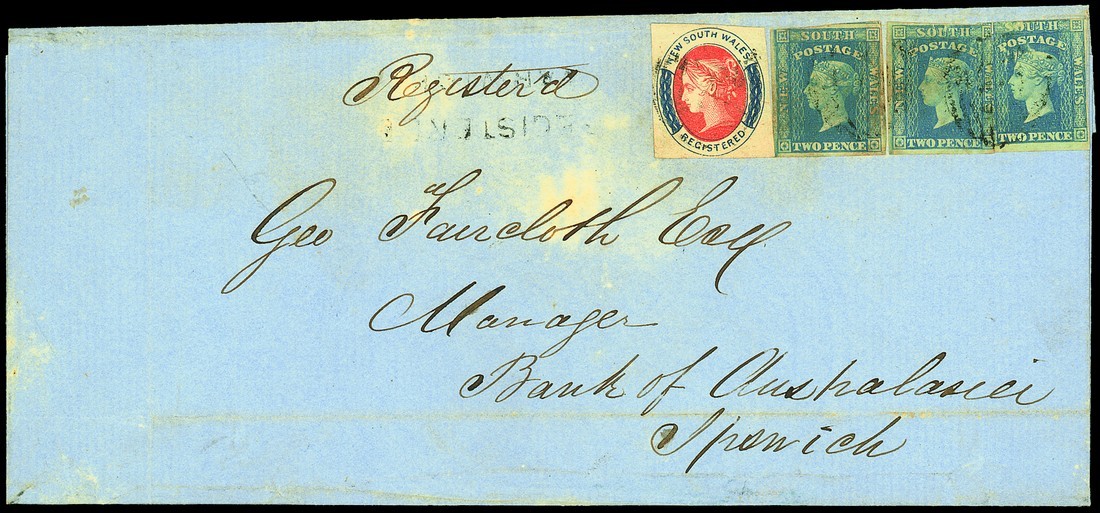 Registerd
REGISTER
NEW SOUTH WALES
REGISTERED
NEW SOUTH WALES
POSTAGE
TWO PENCE
NEW SOUTH WALES
POSTAGE
TWO PENCE
SOUTH WALES
POSTAGE
TWO PENCE
Geo Faircloth Esq
Manager
Bank of Australasia
Ipswich